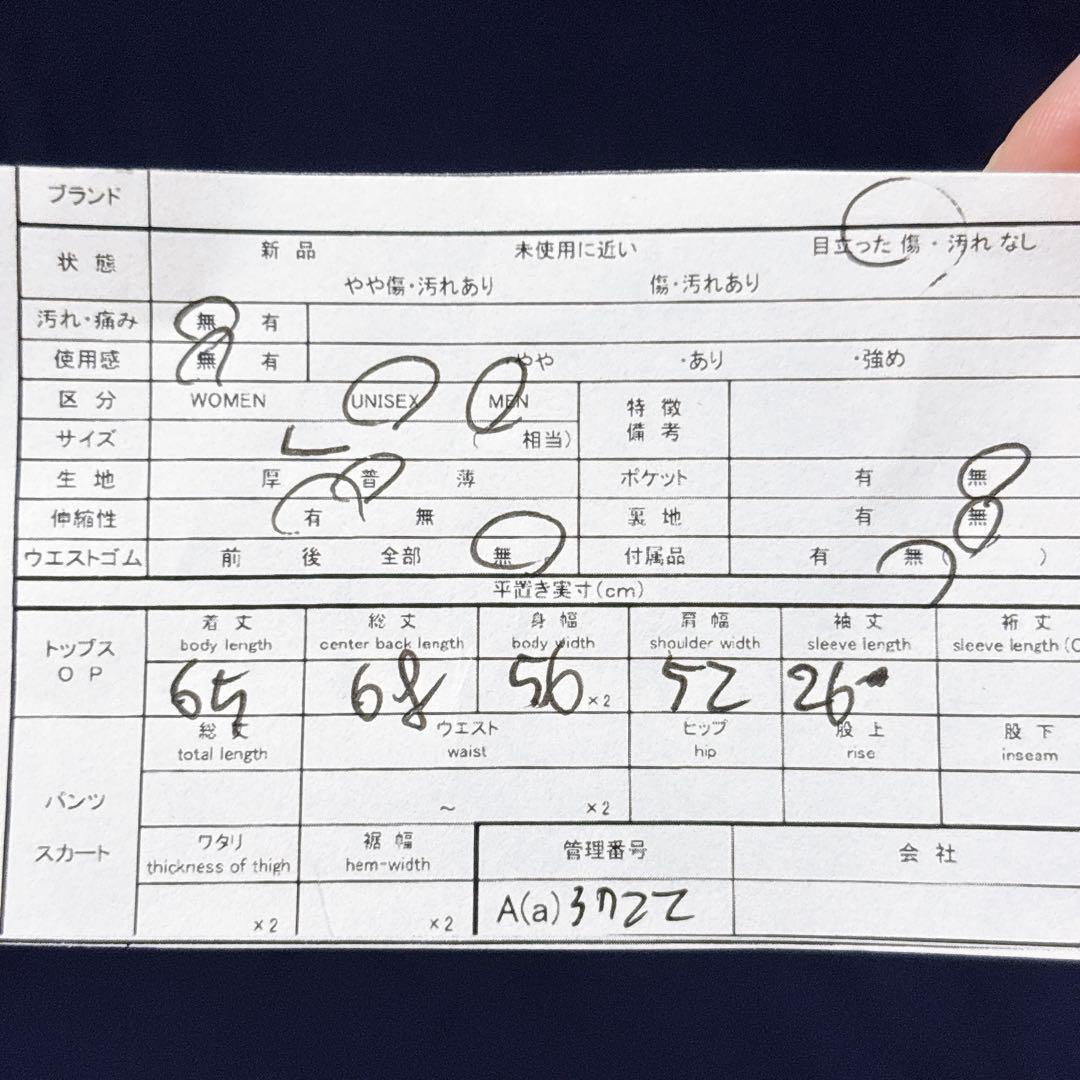 ブランド
状態 新品 未使用に近い 目立った傷・汚れなし
やや傷・汚れあり 傷・汚れあり
汚れ・痛み 無 有
使用感 無 有 ・やや ・あり ・強め
区分 WOMEN UNISEX MEN 特徴
サイズ L ( 相当) 備考
生地 厚 普 薄 ポケット 有 無
伸縮性 有 無 裏地 有 無
ウエストゴム 前 後 全部 無 付属品 有 無 ( )
平置き実寸(cm)
着丈 総丈 身幅 肩幅 袖丈 裄丈
トップス body length center back length body width shoulder width sleeve length sleeve length (C
OP 65 68 56 ×2 52 26
総丈 ウエスト ヒップ 股上 股下
total length waist hip rise inseam
パンツ ～ ×2
スカート ワタリ 裾幅 管理番号 会社
thickness of thigh hem-width
×2 ×2 A(a) 3722